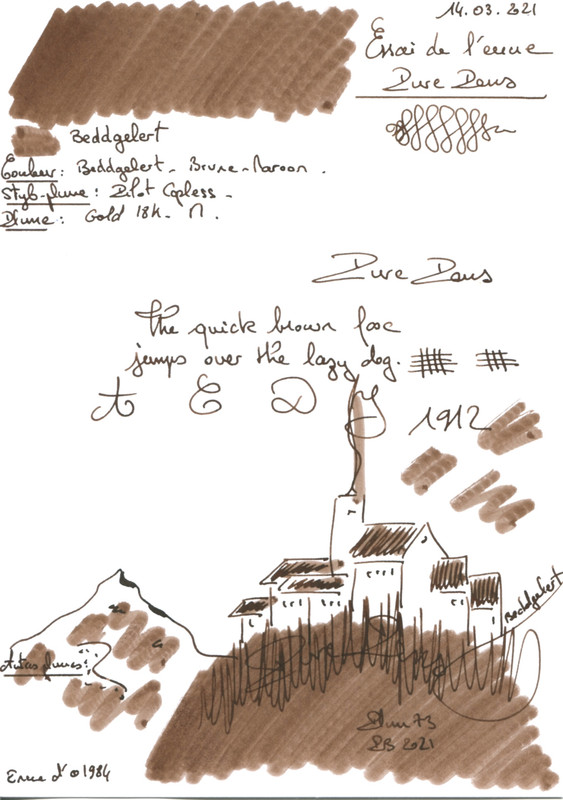 14.03.2021
Essai de l'encre
Pure Pens
Beddgelert
Couleur : Beddgelert - Brune-Maroon.
Stylo-plume : Pilot Capless -
Plume : Gold 18k - M.
Pure Pens
The quick brown fox
jumps over the lazy dog.
A E D
1912
Beddgelert
Autres plumes :
Pure Pens
2021
Encre N° 1984